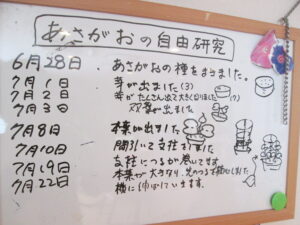 あさがおの自由研究
6月28日 あさがおの種をまきました。
7月1日 芽が出ました(3)
7月2日 芽がたくさん出て大きくなりました(7)
7月3日 双葉が出ました
7月8日 本葉が出ました
7月10日 間引いて支柱をしました
7月19日 支柱につるが巻いてます。
7月22日 本葉が大きくなり、
横に伸ばしています。